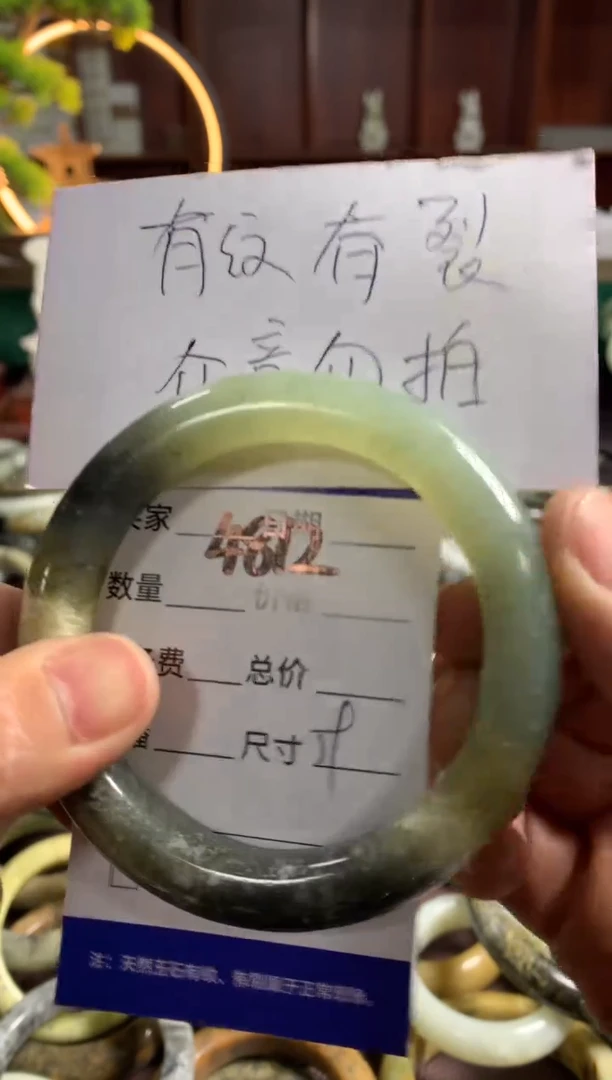 有纹有裂
介意勿拍
买家 日期
4612
数量 价格
费 总价
尺寸
注：天然玉石有纹、棉属于正常现象。